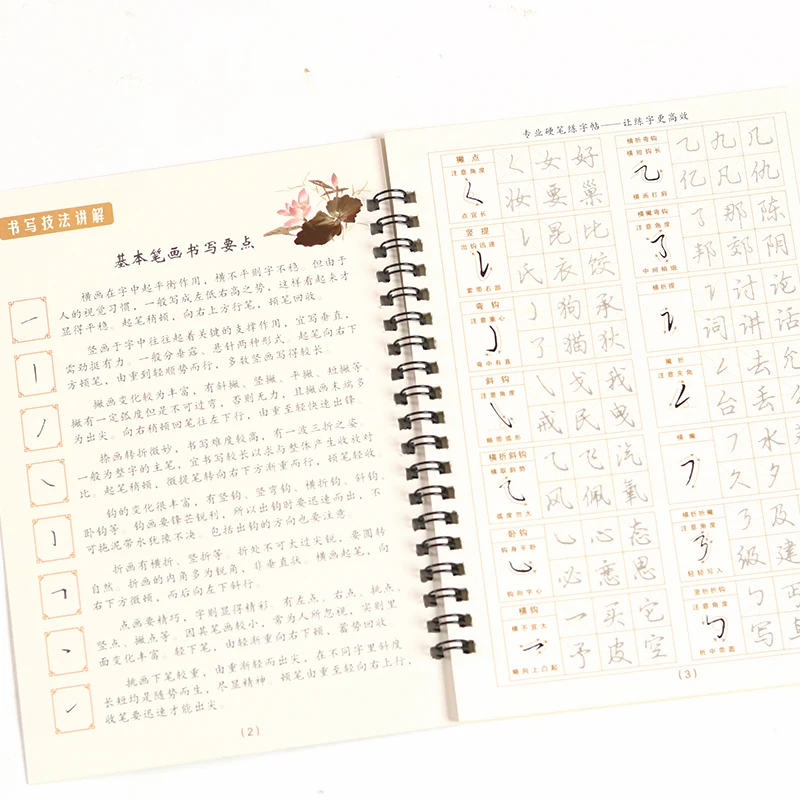 书写技法讲解
基本笔画书写要点
横画在字中起平衡作用，横不平则字不稳。但由于
人的视觉习惯，一般写成左低右高之势，这样看起来才
显得平稳。起笔稍顿，向右上方行笔，顿笔回收。
竖画于字中往往起着关键的支撑作用，宜写垂直，
需劲挺有力。一般分垂露、悬针两种形式。起笔向右下
方顿笔，由重到轻顺势而行，多数竖画写得较长。
撇画变化较为丰富，有斜撇、竖撇、平撇、短撇等。
撇有一定弧度但是不可过弯，否则无力，且撇画末端多
为出尖。向右稍顿回笔往左下行，由重至轻快速出锋。
捺画转折微妙，书写难度较高，有一波三折之姿。
一般为整字的主笔，宜书写较长以求与整体产生收放对
比。起笔稍顿，微提笔转向右下方渐重而行，顿笔轻收。
钩的变化很丰富，有竖钩、竖弯钩、横折钩、斜钩、
卧钩等。钩画要锋芒锐利，所以出钩时要迅速而出，不
可拖泥带水犹豫不决。包括出钩的方向也要注意。
折画有横折、竖折等。折处不可太过尖锐，要圆转
自然。折画的内角多为锐角，非垂直状。横画起笔，向
右下方微顿，而后向左下斜行。
点画要精巧，字则显得精彩。有左点、右点、挑点、
竖点、撇点等。因其笔画较小，常为人所忽视，实则里
面变化丰富。轻下笔，由轻渐重向右下顿，蓄势回收。
挑画下笔较重，由重渐轻而出尖，在不同字里斜度
长短均是随势而生，尽显精神。顿笔由重至轻向右上行，
收笔要迅速才能出尖。
(2)
专业硬笔练字帖——让练字更高效
撇点
注意角度
点宜长
女 好
妆 要 巢
竖提
出钩迅速
紧带右部
昆 比
氏 衣 饺
弯钩
注意重心
弯中有直
狗 承
了 猫 狄
斜钩
注意角度
略带弧形
戈 我
戒 民 曳
横折斜钩
横取斜势
弧度勿大
飞 汽
风 佩 氧
卧钩
钩身平卧
钩向字心
心 态
必 惹 思
横钩
横不宜大
略向上凸起
买 它
予 皮 空
横折弯钩
横短钩长
横画扛肩
九 几
亿 凡 仇
横撇弯钩
注意角度
中间稍细
那 陈
邦 郊 阴
横折提
讨 论
词 讲 话
撇折
注意夹角
去 允
台 丢
横撇
水
久 夕
横折折撇
注意角度
轻轻写入
及
级 建
竖折折钩
注意角度
折中带圆
写
(3)